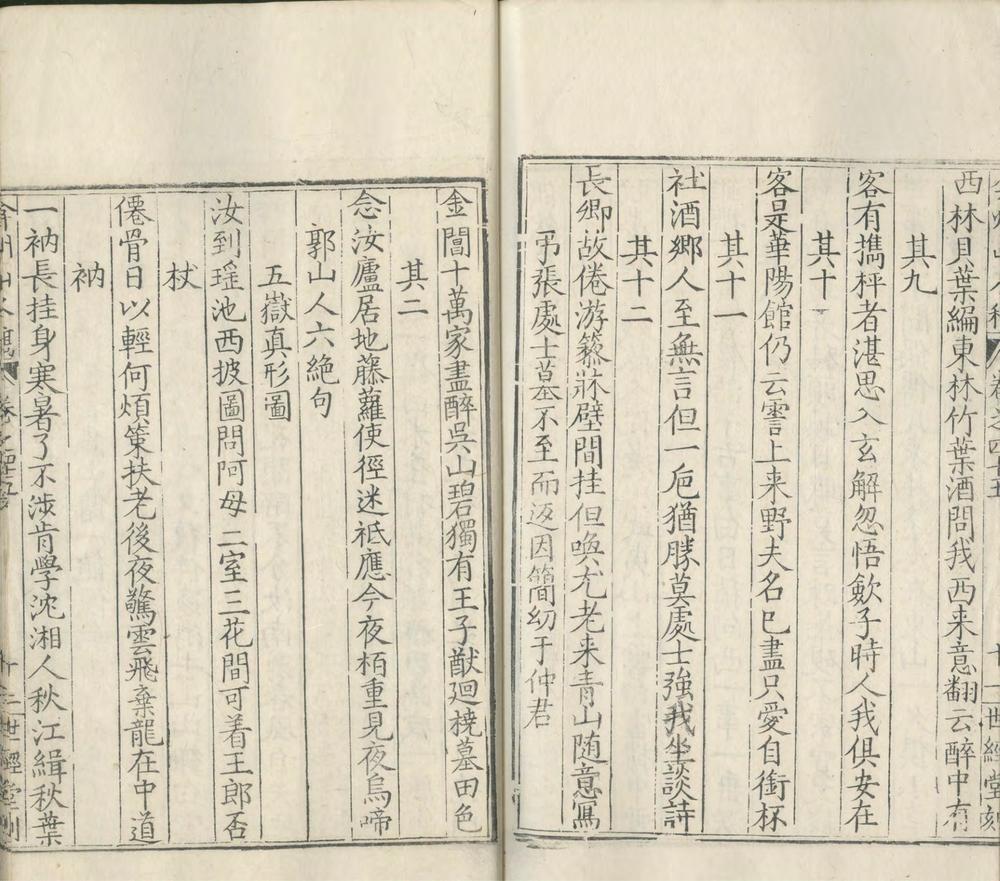 弇州山人稿 卷之四十五 十一 世經堂刻
西林貝葉編東林竹葉酒問我西来意翻云醉中有
其九
客有擕枰者湛思入玄解忽悟歛子時人我俱安在
其十
客是華陽館仍云霅上来野夫名已盡只愛自銜杯
其十一
社酒鄉人至無言但一巵猶勝莫處士強我坐談詩
其十二
長卿故倦游箛牀壁間挂但喚尤老来青山随意寫
弔張處士墓不至而返因簡幼于仲君
金閶十萬家盡醉吳山碧獨有王子猷廻橈墓田色
其二
念汝廬居地藤蘿使徑迷祗應今夜栢重見夜烏啼
郭山人六絶句
五嶽真形圖
汝到瑶池西披圖問阿母二室三花間可着王郎否
杖
僊骨日以輕何煩策扶老後夜驚雲飛棄龍在中道
衲
一衲長挂身寒暑了不涉肯學沈湘人秋江緝秋葉
弇州山人稿 卷之四十五 十二 世經堂刻